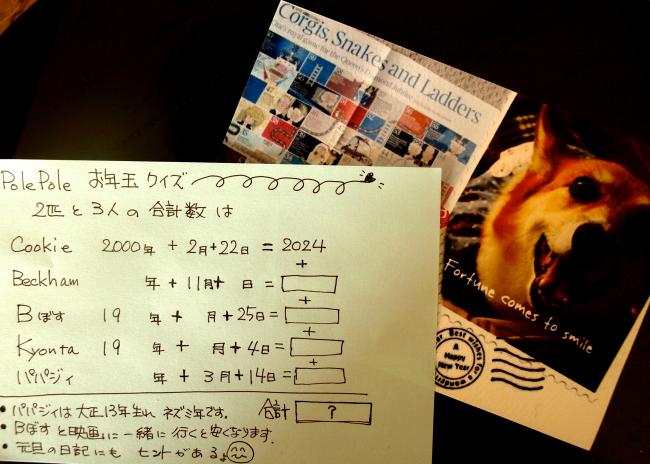 Corgis, Snakes and Ladders
PolePole お年玉クイズ
2匹と3人の合計数は
Cookie 2000年 + 2月+22日 = 2024
+
Beckham 年 + 11月+ 日 =
+
Bぼす 19 年 + 月+25日=
+
Kyonta 19 年 + 月+4日=
+
パパジィ 年 + 3月+14日=
合計 ?
・パパジィは大正13年生れ ネズミ年です。
・Bぼすと映画に一緒に行くと安くなります。
・元旦の日記にも ヒントがあるよ
Fortune comes to smile
Best wishes for a wonderful year
A Happy New Year